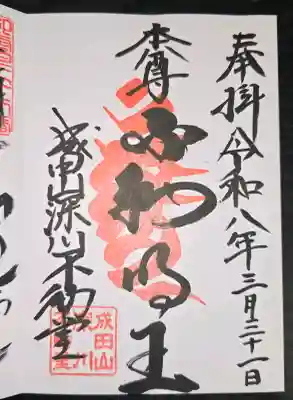 奉拝 令和八年三月二十一日
本尊
不動明王
成田山深川不動堂
成田山
深川
不動堂